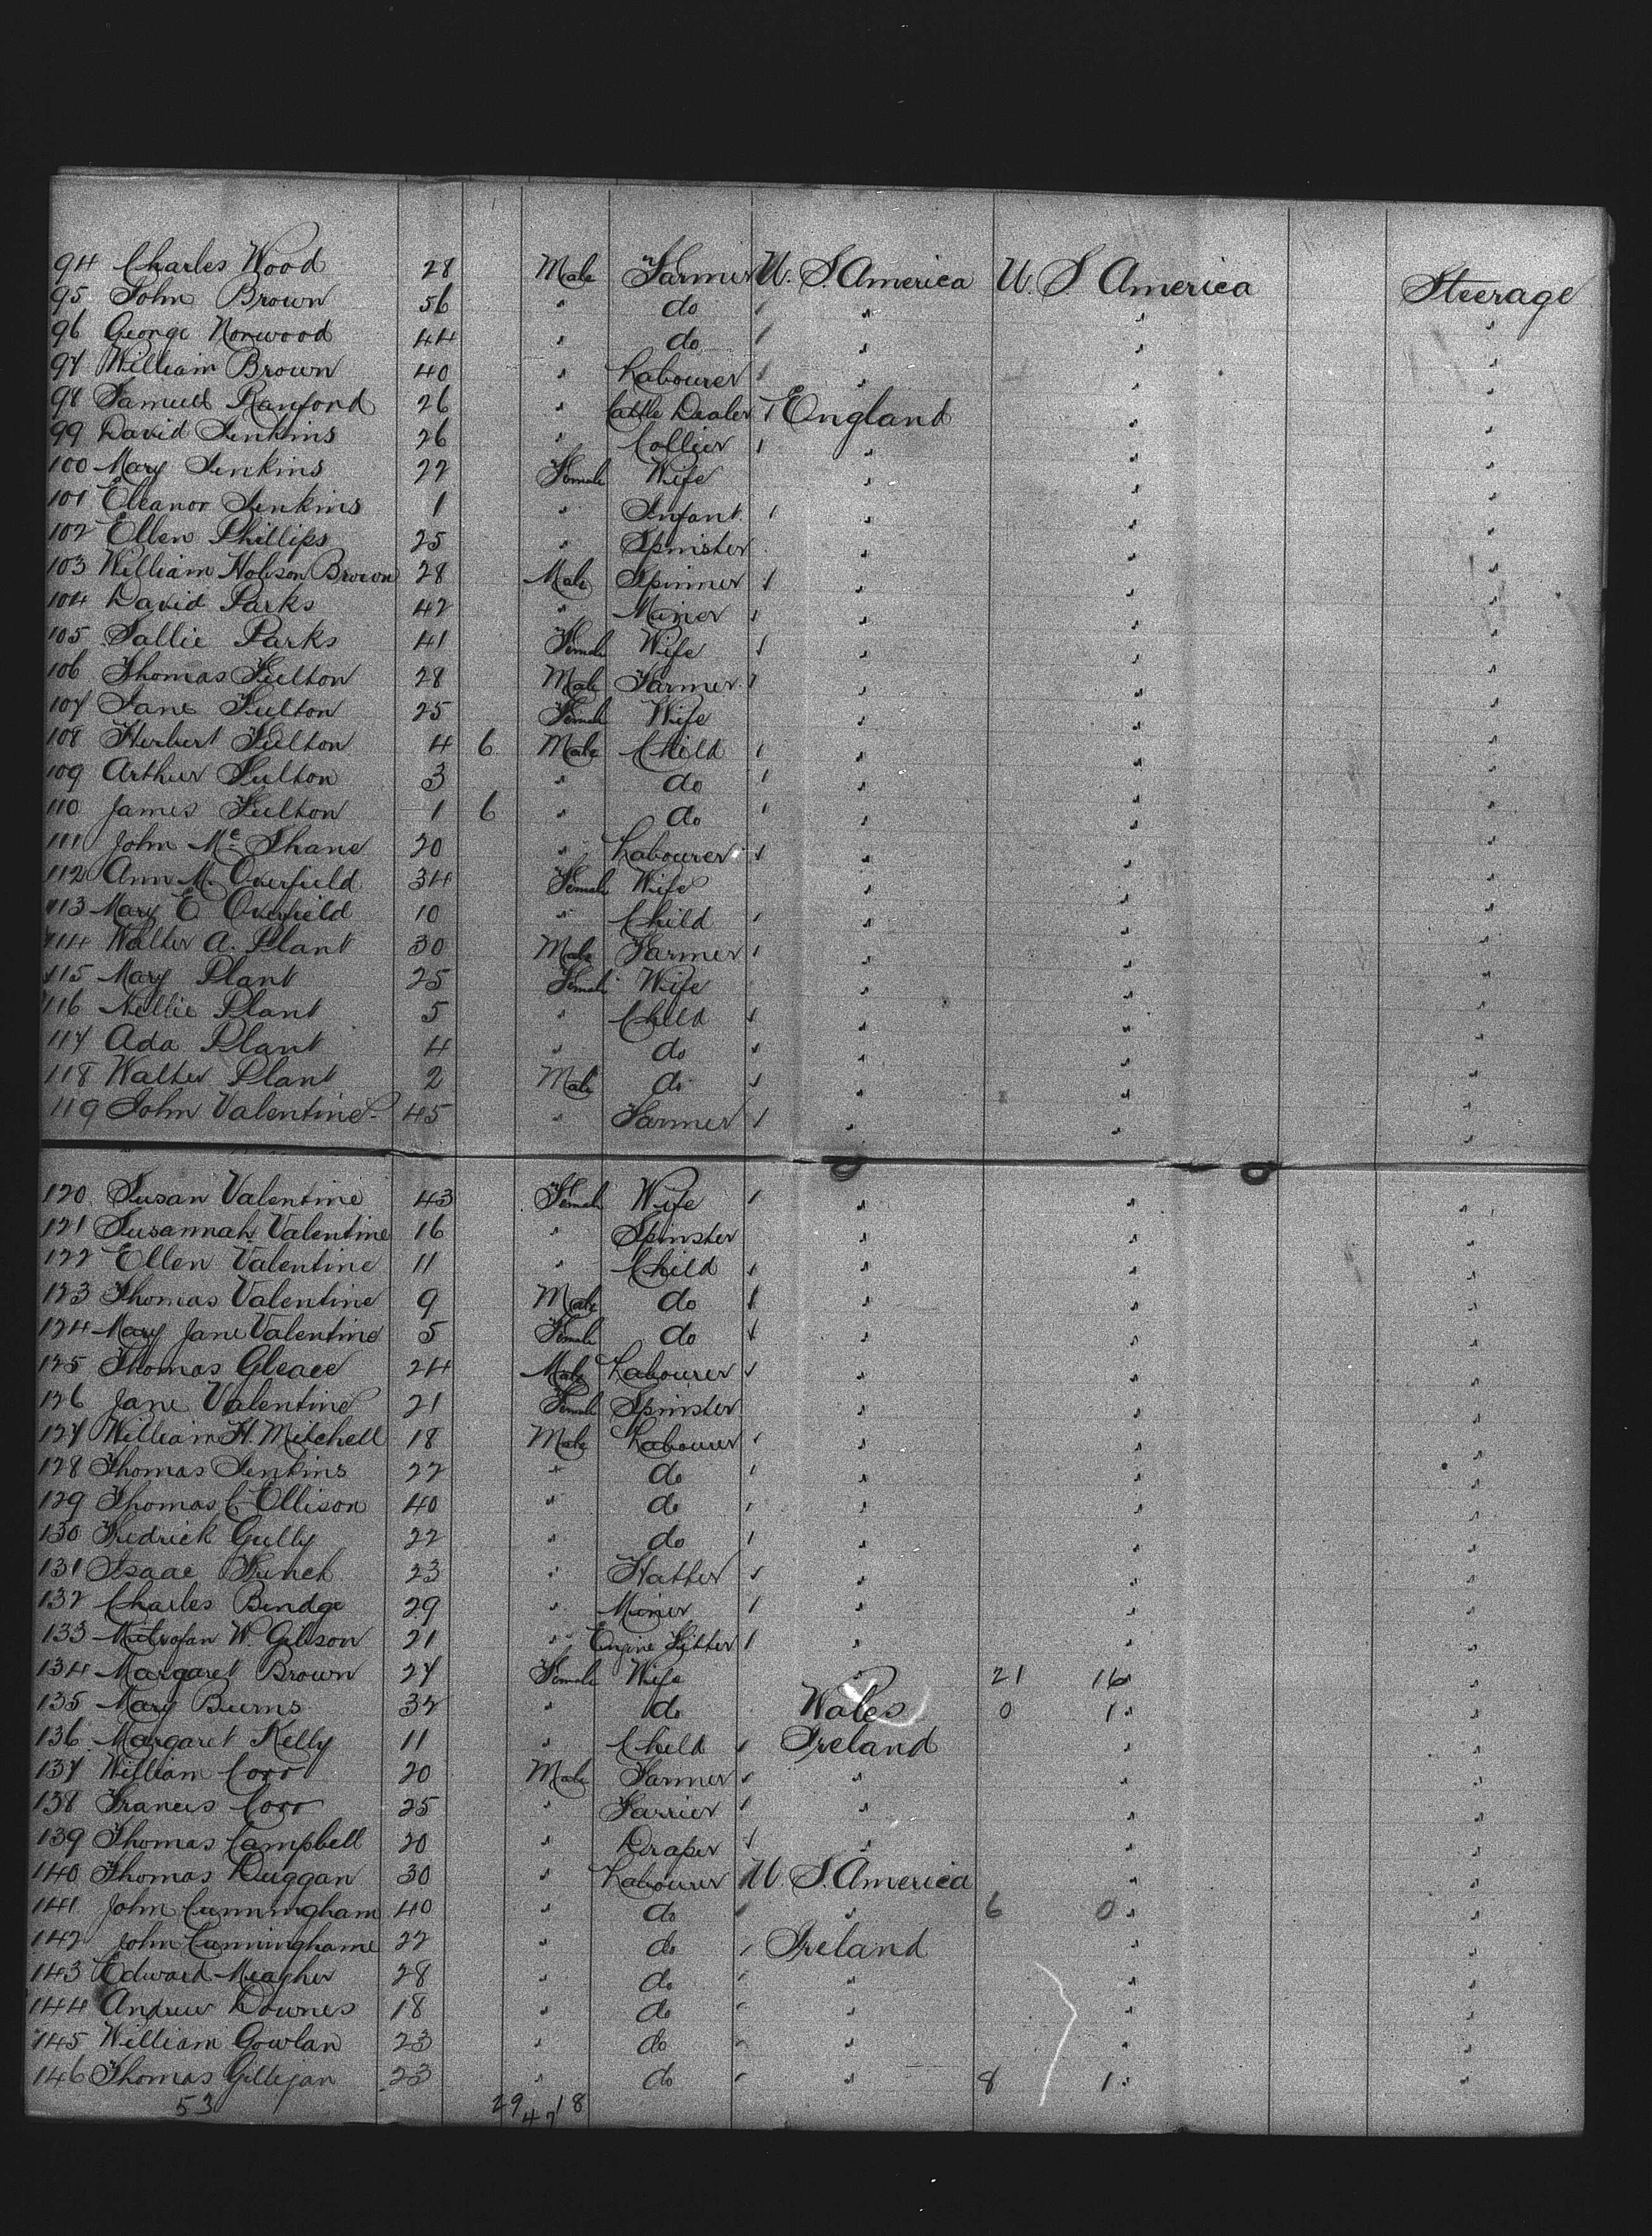 94 Charles Wood 28 Male Farmer U. S. America U. S. America Steerage
95 John Brown 56 " do " " "
96 George Norwood 44 " do " " "
97 William Brown 40 " Labourer " " "
98 Samuel Ranford 26 " Cattle Dealer England " "
99 David Jenkins 26 " Collier " " "
100 Mary Jenkins 22 Female Wife " " "
101 Eleanor Jenkins 1 " Infant " " "
102 Ellen Phillips 25 " Spinster " " "
103 William Hobson Brown 28 Male Spinner " " "
104 David Parks 42 " Miner " " "
105 Sallie Parks 41 Female Wife " " "
106 Thomas Fulton 28 Male Farmer " " "
107 Jane Fulton 25 Female Wife " " "
108 Herbert Fulton 4 6 Male Child " " "
109 Arthur Fulton 3 " do " " "
110 James Fulton 1 6 " do " " "
111 John Mc Shane 20 " Labourer " " "
112 Ann M. Overfield 34 Female Wife " " "
113 Mary E Overfield 10 " Child " " "
114 Walter A. Plant 30 Male Farmer " " "
115 Mary Plant 25 Female Wife " " "
116 Nellie Plant 5 " Child " " "
117 Ada Plant 4 " do " " "
118 Walter Plant 2 Male do " " "
119 John Valentine 45 " Farmer " " "
120 Susan Valentine 43 Female Wife " " "
121 Susannah Valentine 16 " Spinster " " "
122 Ellen Valentine 11 " Child " " "
123 Thomas Valentine 9 Male do " " "
124 Mary Jane Valentine 5 Female do " " "
125 Thomas 24 Male Labourer " " "
126 Jane Valentine 21 Female Spinster " " "
127 William H. Mitchell 18 Male Labourer " " "
128 Thomas Jenkins 22 " do " " "
129 Thomas C Ellison 40 " do " " "
130 Fredrick Gully 22 " do " " "
131 Isaac 23 " Hatter " " "
132 Charles 29 " Miner " " "
133 W. Gibson 21 " Engine Fitter " " "
134 Margaret Brown 27 Female Wife " 21 16 " "
135 Mary Burns 32 " do Wales 0 1 " "
136 Margaret Kelly 11 " Child Ireland " "
137 William Corr 20 Male Farmer " " "
138 Francis Corr 25 " Farrier " " "
139 Thomas Campbell 20 " Draper " " "
140 Thomas Duggan 30 " Labourer U. S. America " "
141 John Cunningham 40 " do " 6 0 " "
142 John Cunninghame 22 " do Ireland " "
143 Edward Meagher 28 " do " " "
144 Andrew Downes 18 " do " " "
145 William Gowlan 23 " do " " "
146 Thomas Gilligan 23 " do " 8 1 " "
53 29 18
47